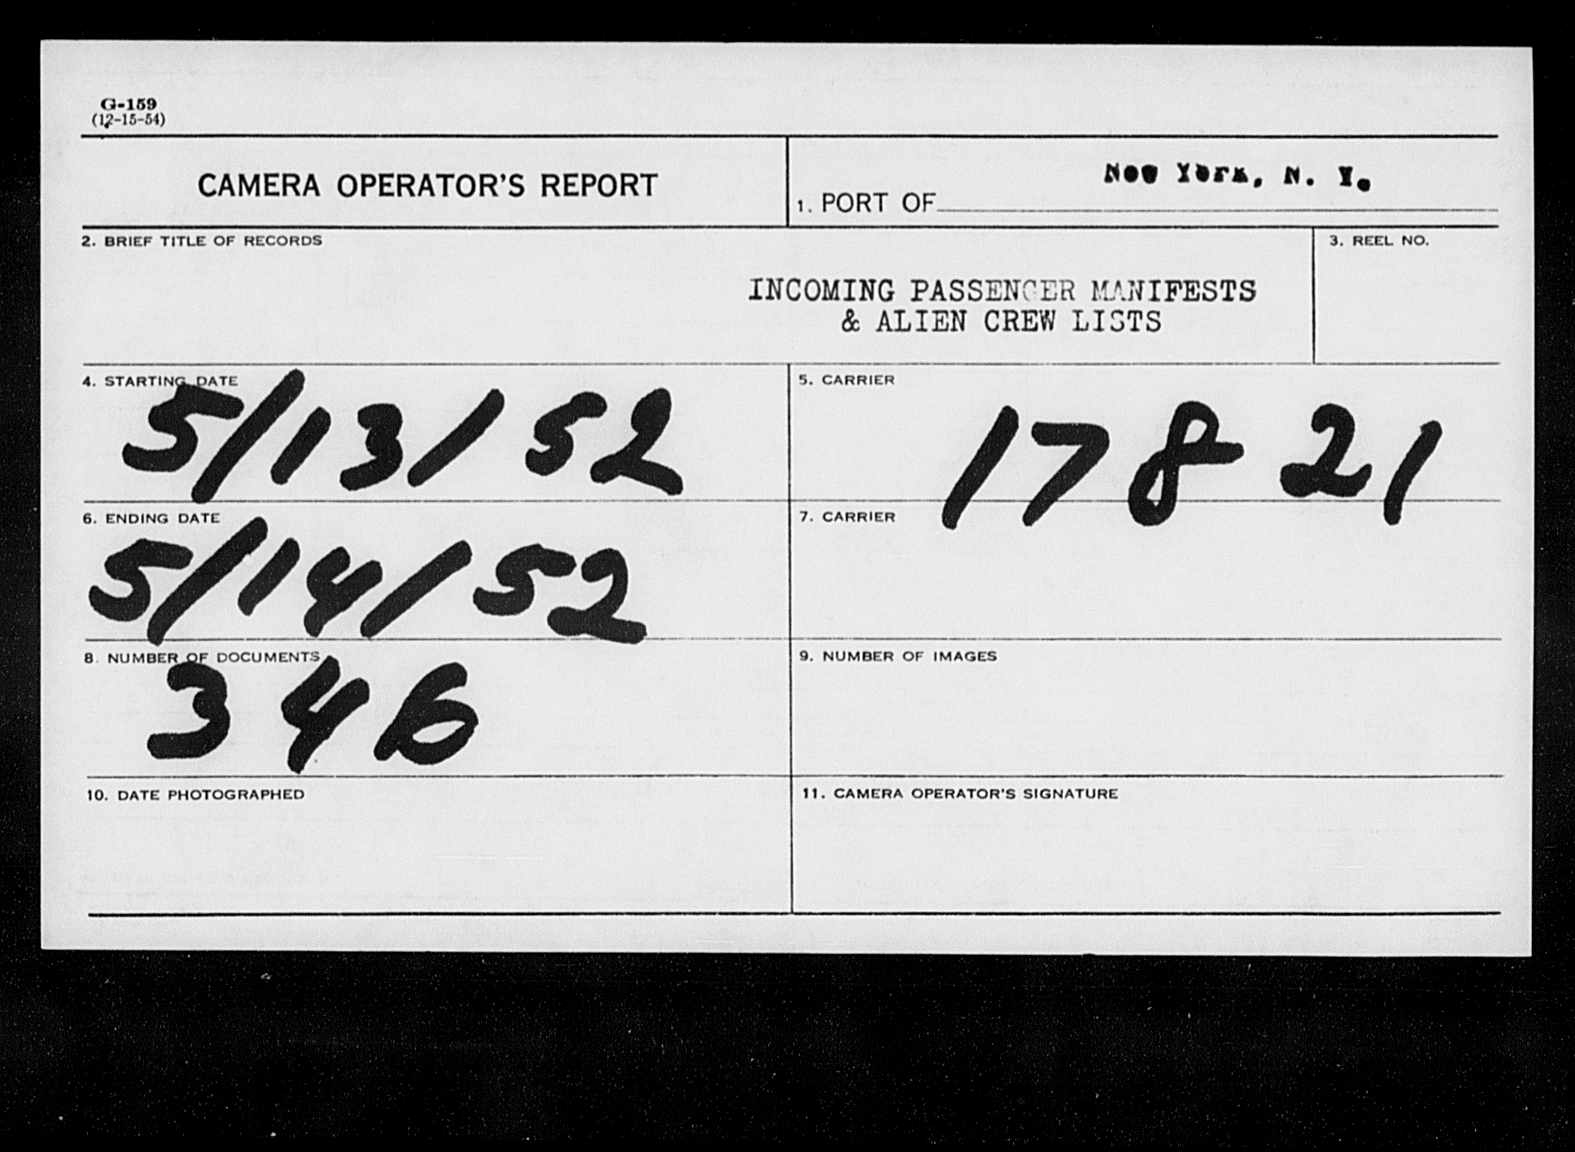 G-159
(12-15-54)
CAMERA OPERATOR'S REPORT
1. PORT OF New York, N. Y.
2. BRIEF TITLE OF RECORDS
INCOMING PASSENGER MANIFESTS
& ALIEN CREW LISTS
3. REEL NO.
4. STARTING DATE
5/13/52
5. CARRIER
17821
6. ENDING DATE
5/14/52
7. CARRIER
8. NUMBER OF DOCUMENTS
346
9. NUMBER OF IMAGES
10. DATE PHOTOGRAPHED
11. CAMERA OPERATOR'S SIGNATURE